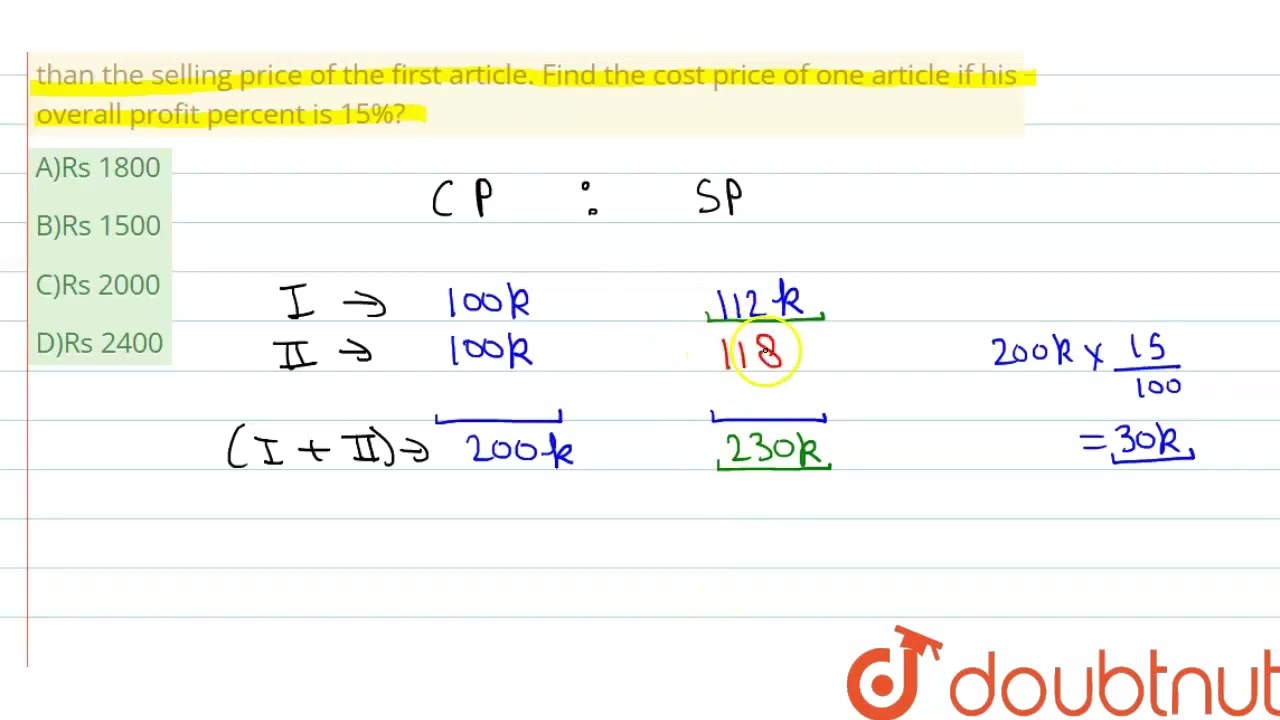 than the selling price of the first article. Find the cost price of one article if his
overall profit percent is 15%?
A)Rs 1800
B)Rs 1500
C)Rs 2000
D)Rs 2400
CP : SP
I → 100k 112k
II → 100k 118
200k × 15/100
(I + II) → 200k 230k
= 30k
doubtnut